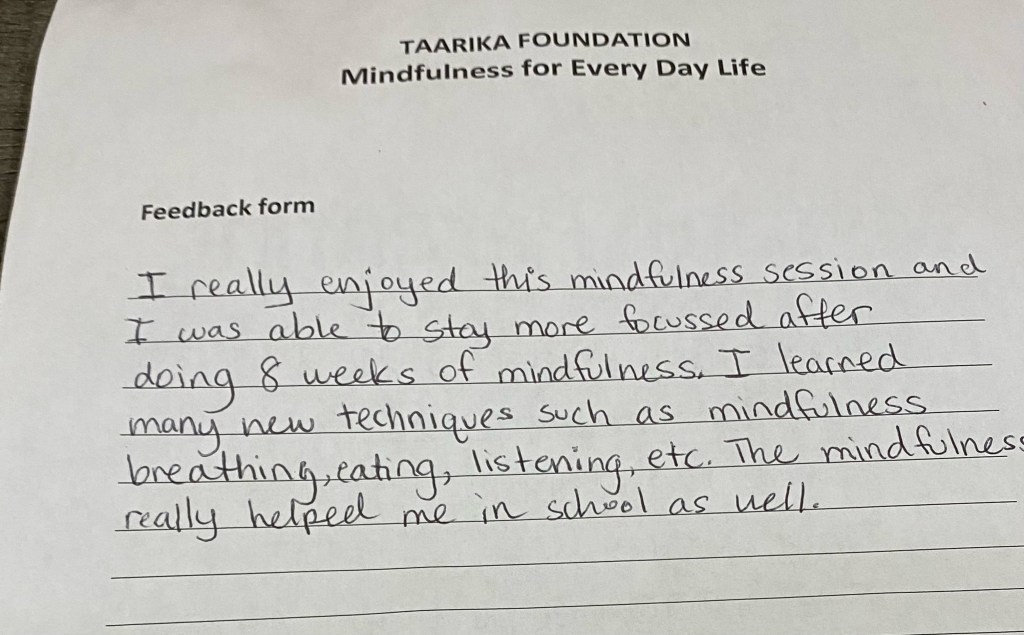 TAARIKA FOUNDATION
Mindfulness for Every Day Life
Feedback form
I really enjoyed this mindfulness session and
I was able to stay more focussed after
doing 8 weeks of mindfulness. I learned
many new techniques such as mindfulness
breathing, eating, listening, etc. The mindfulness
really helped me in school as well.